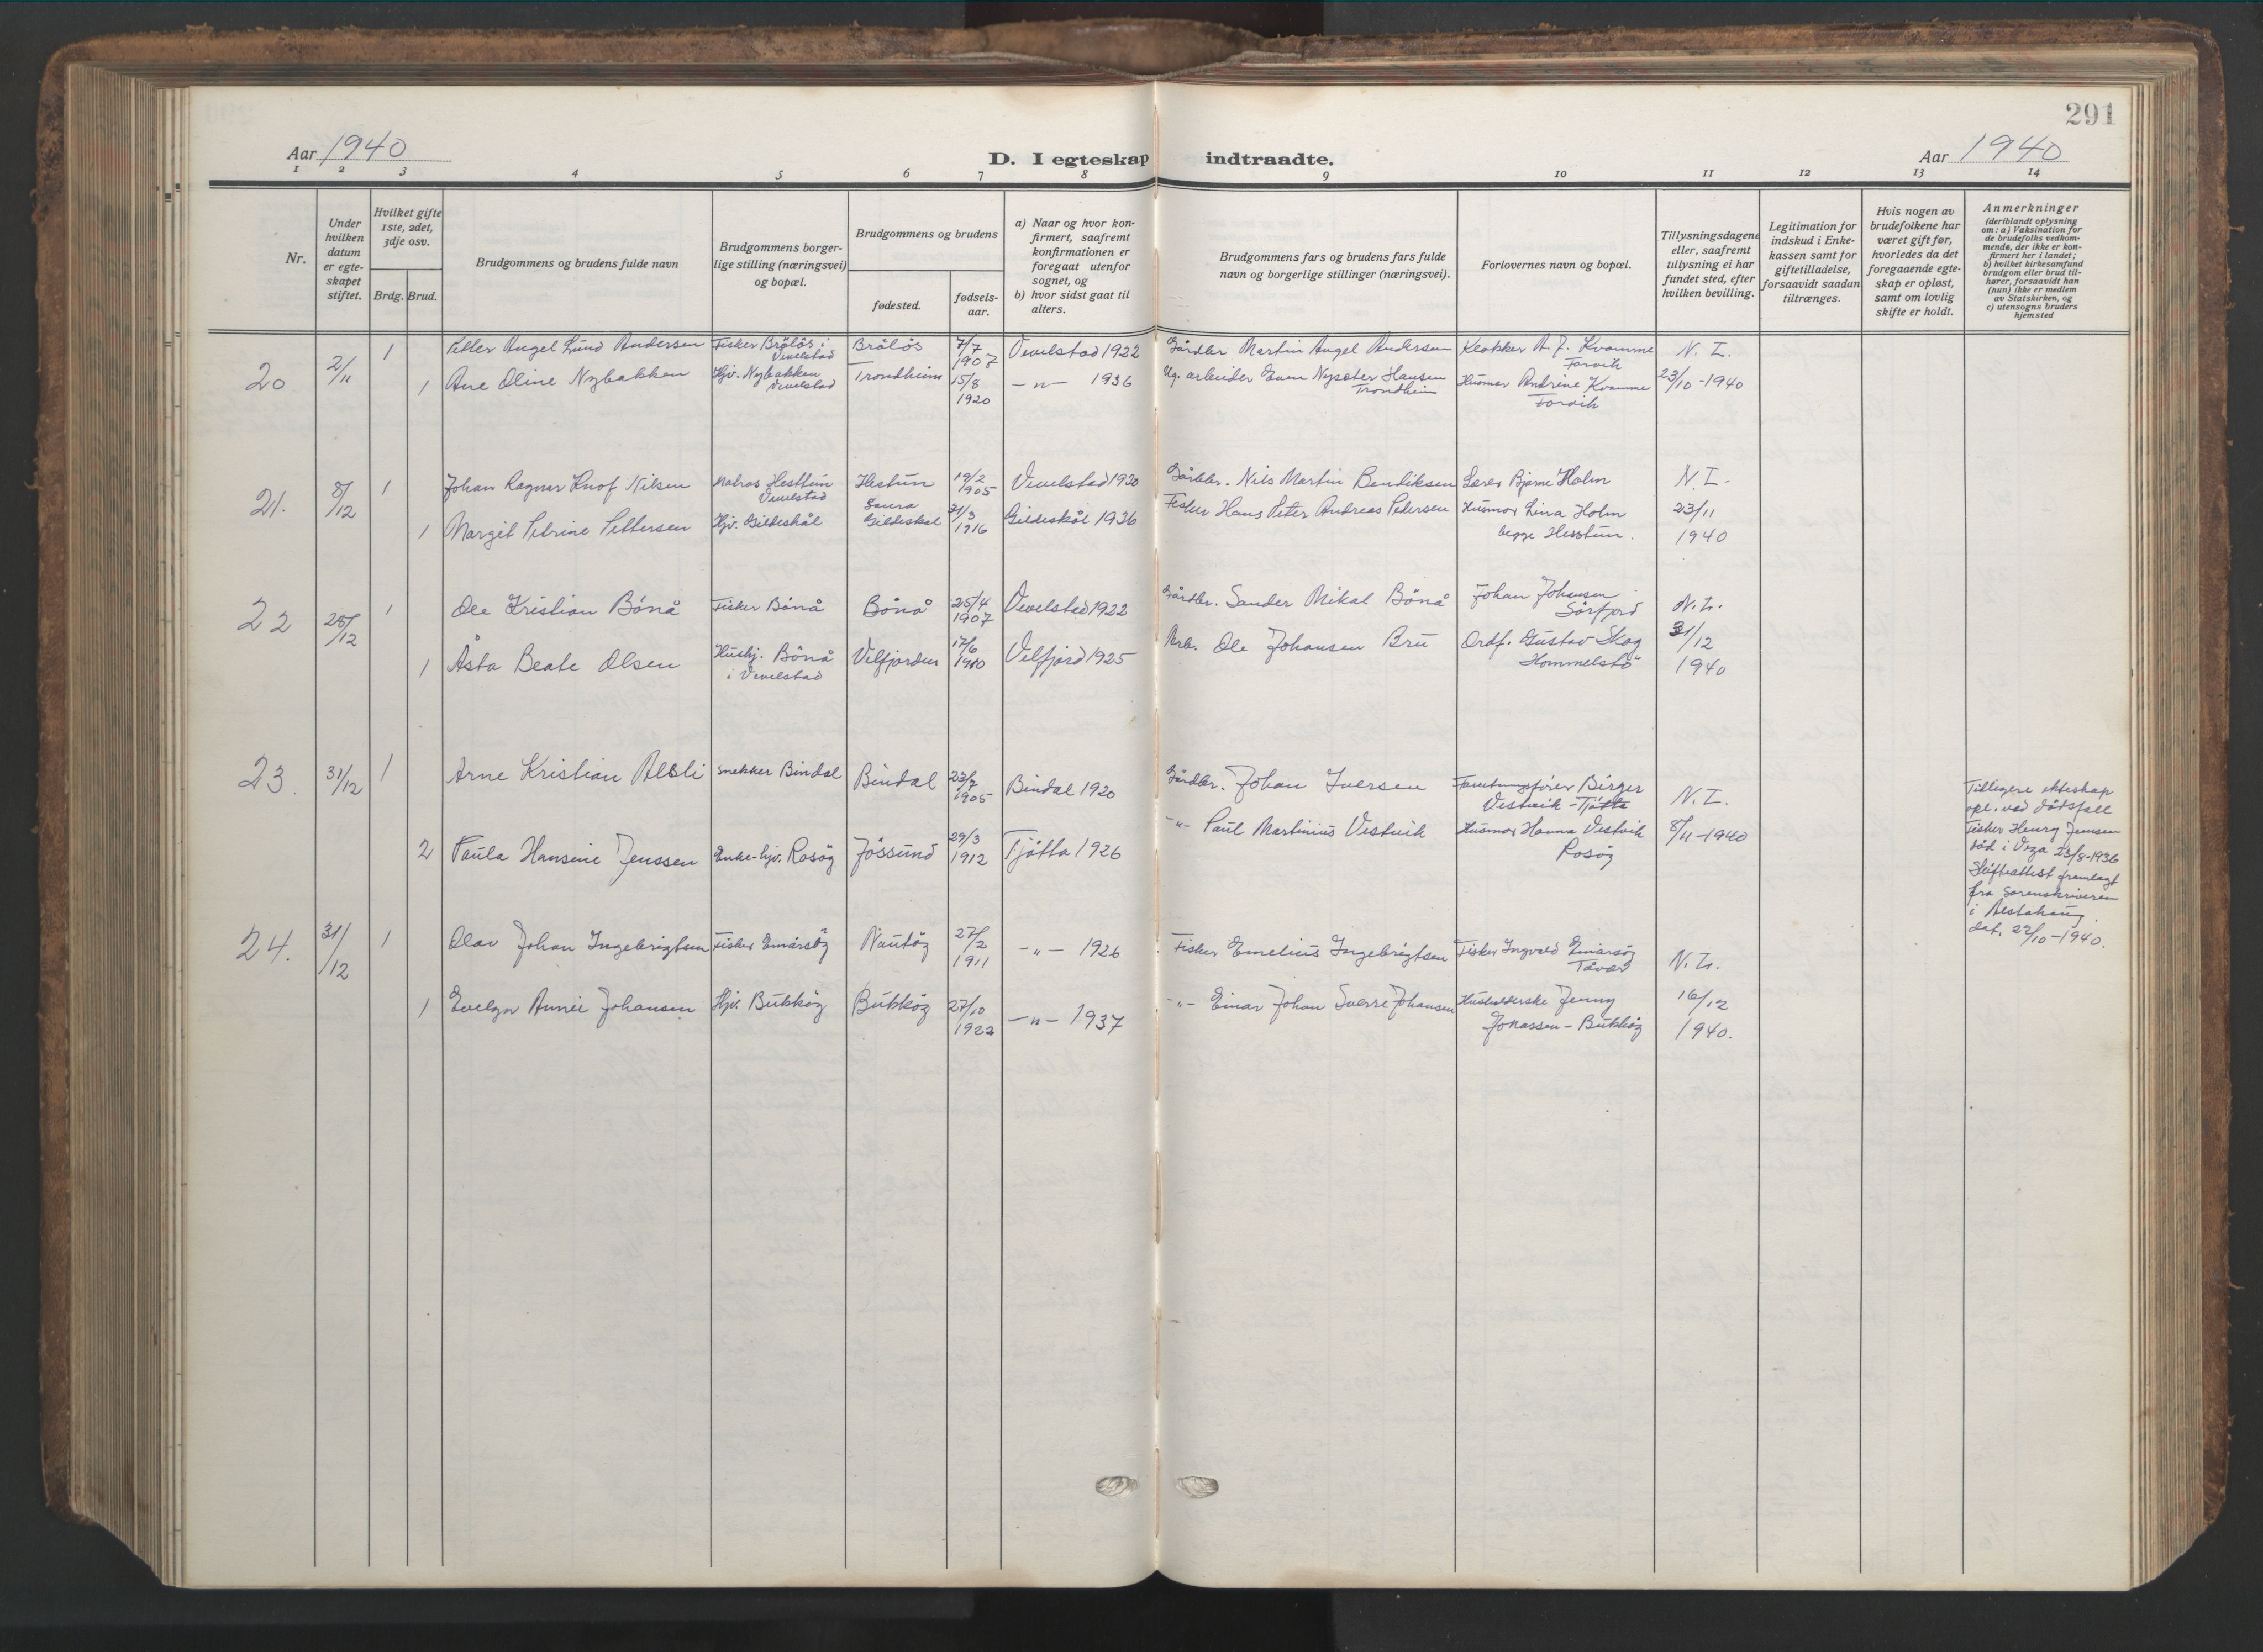 291
Aar 1940
D. I egteskap indtraadte.
Aar 1940
1 2 3 4 5 6 7 8 9 10 11 12 13 14
Nr.
Under hvilken datum er egte-skapet stiftet.
Hvilket gifte 1ste, 2det, 3dje osv.
Brdg. Brud.
Brudgommens og brudens fulde navn
Brudgommens borger-lige stilling (næringsvei) og bopæl.
Brudgommens og brudens
fødested.
fødsels-aar.
a) Naar og hvor kon-firmert, saafremt konfirmationen er foregaat utenfor sognet, og
b) hvor sidst gaat til alters.
Brudgommens fars og brudens fars fulde navn og borgerlige stillinger (næringsvei).
Forlovernes navn og bopæl.
Tillysningsdagene eller, saafremt tillysning ei har fundet sted, efter hvilken bevilling.
Legitimation for indskud i Enke-kassen samt for giftetilladelse, forsaavidt saadan tiltrænges.
Hvis nogen av brudefolkene har været gift før, hvorledes da det foregaaende egte-skap er opløst, samt om lovlig skifte er holdt.
Anmerkninger
(deriblandt oplysning om: a) Vaksination for de brudefolks vedkom-mende, der ikke er kon-firmert her i landet; b) hvilket kirkesamfund brudgom eller brud til-hører, forsaavidt han (hun) ikke er medlem av Statskirken, og c) utensogns bruders hjemsted
20 2/11 1 Petter Angel Lund Andersen Fisker Brålös i Vevelstad Brålös 7/7 1907 Vevelstad 1922 Gårdbr. Martin Angel Andersen Klokker A. J. Kvamme Forvik N. L.
1 Ane Oline Nybakken Hjv. Nybakken Vevelstad Trondheim 15/8 1920 -"- 1936 Ug. arbeider Even Nyseter Hansen Trondheim Husmor Andrine Kvamme Forvik 23/10-1940
21. 8/12 1 Johan Ragnar Knof Nilsen Matros Hesttun Vevelstad Hestun 19/2 1905 Vevelstad 1920 Gårdbr. Nils Martin Bendiksen Lærer Bjarne Holm N. L.
1 Margit Petrine Pettersen Hjv. Gildeskål Saura Gildeskål 31/3 1916 Gildeskål 1936 Fisker Hans Peter Andreas Pedersen Husmor Lina Holm begge Hesstun. 23/11 1940
22 28/12 1 Ole Kristian Bönå Fisker Bönå Bönå 25/4 1907 Vevelstad 1922 Gårdbr. Sander Mikal Bönå Johan Johansen Sörfjord N. L.
1 Åsta Beate Olsen Hushj. Bönå i Vevelstad Velfjorden 17/6 1910 Velfjord 1925 Arb. Ole Johansen Bru Ordf. Gustav Skog Hommelstö 31/12 1940
23. 31/12 1 Arne Kristian Aksli snekker Bindal Bindal 23/7 1905 Bindal 1920 Gårdbr. Johan Iversen Birger Vestvik - Tjötta N. L.
2 Paula Hansine Jenssen Enke-hjv. Rosöy Jössund 29/3 1912 Tjötta 1926 -"- Paul Martinius Vestvik Husmor Hanna Vestvik Rosöy 8/11-1940
Tidligere ekteskap
opl. ved dödsfall
Fisker Henry Jenssen
död i Vega 23/8-1936
Skifteattest framlagt
fra Sorenskriveren
i Alstahaug.
dat. 22/10-1940.
24. 31/12 1 Olav Johan Ingebrigtsen Fisker Einarsöy Nautöy 27/2 1911 -"- 1926 Fisker Emelius Ingebrigtsen Fisker Ingvald Einarsöy Tåvær N. L.
1 Evelyn Annie Johansen Hjv. Bukköy Bukköy 27/10 1922 -"- 1937 -"- Einar Johan Sverre Johansen Husholderske Jenny Jonassen - Bukköy 16/12 1940.